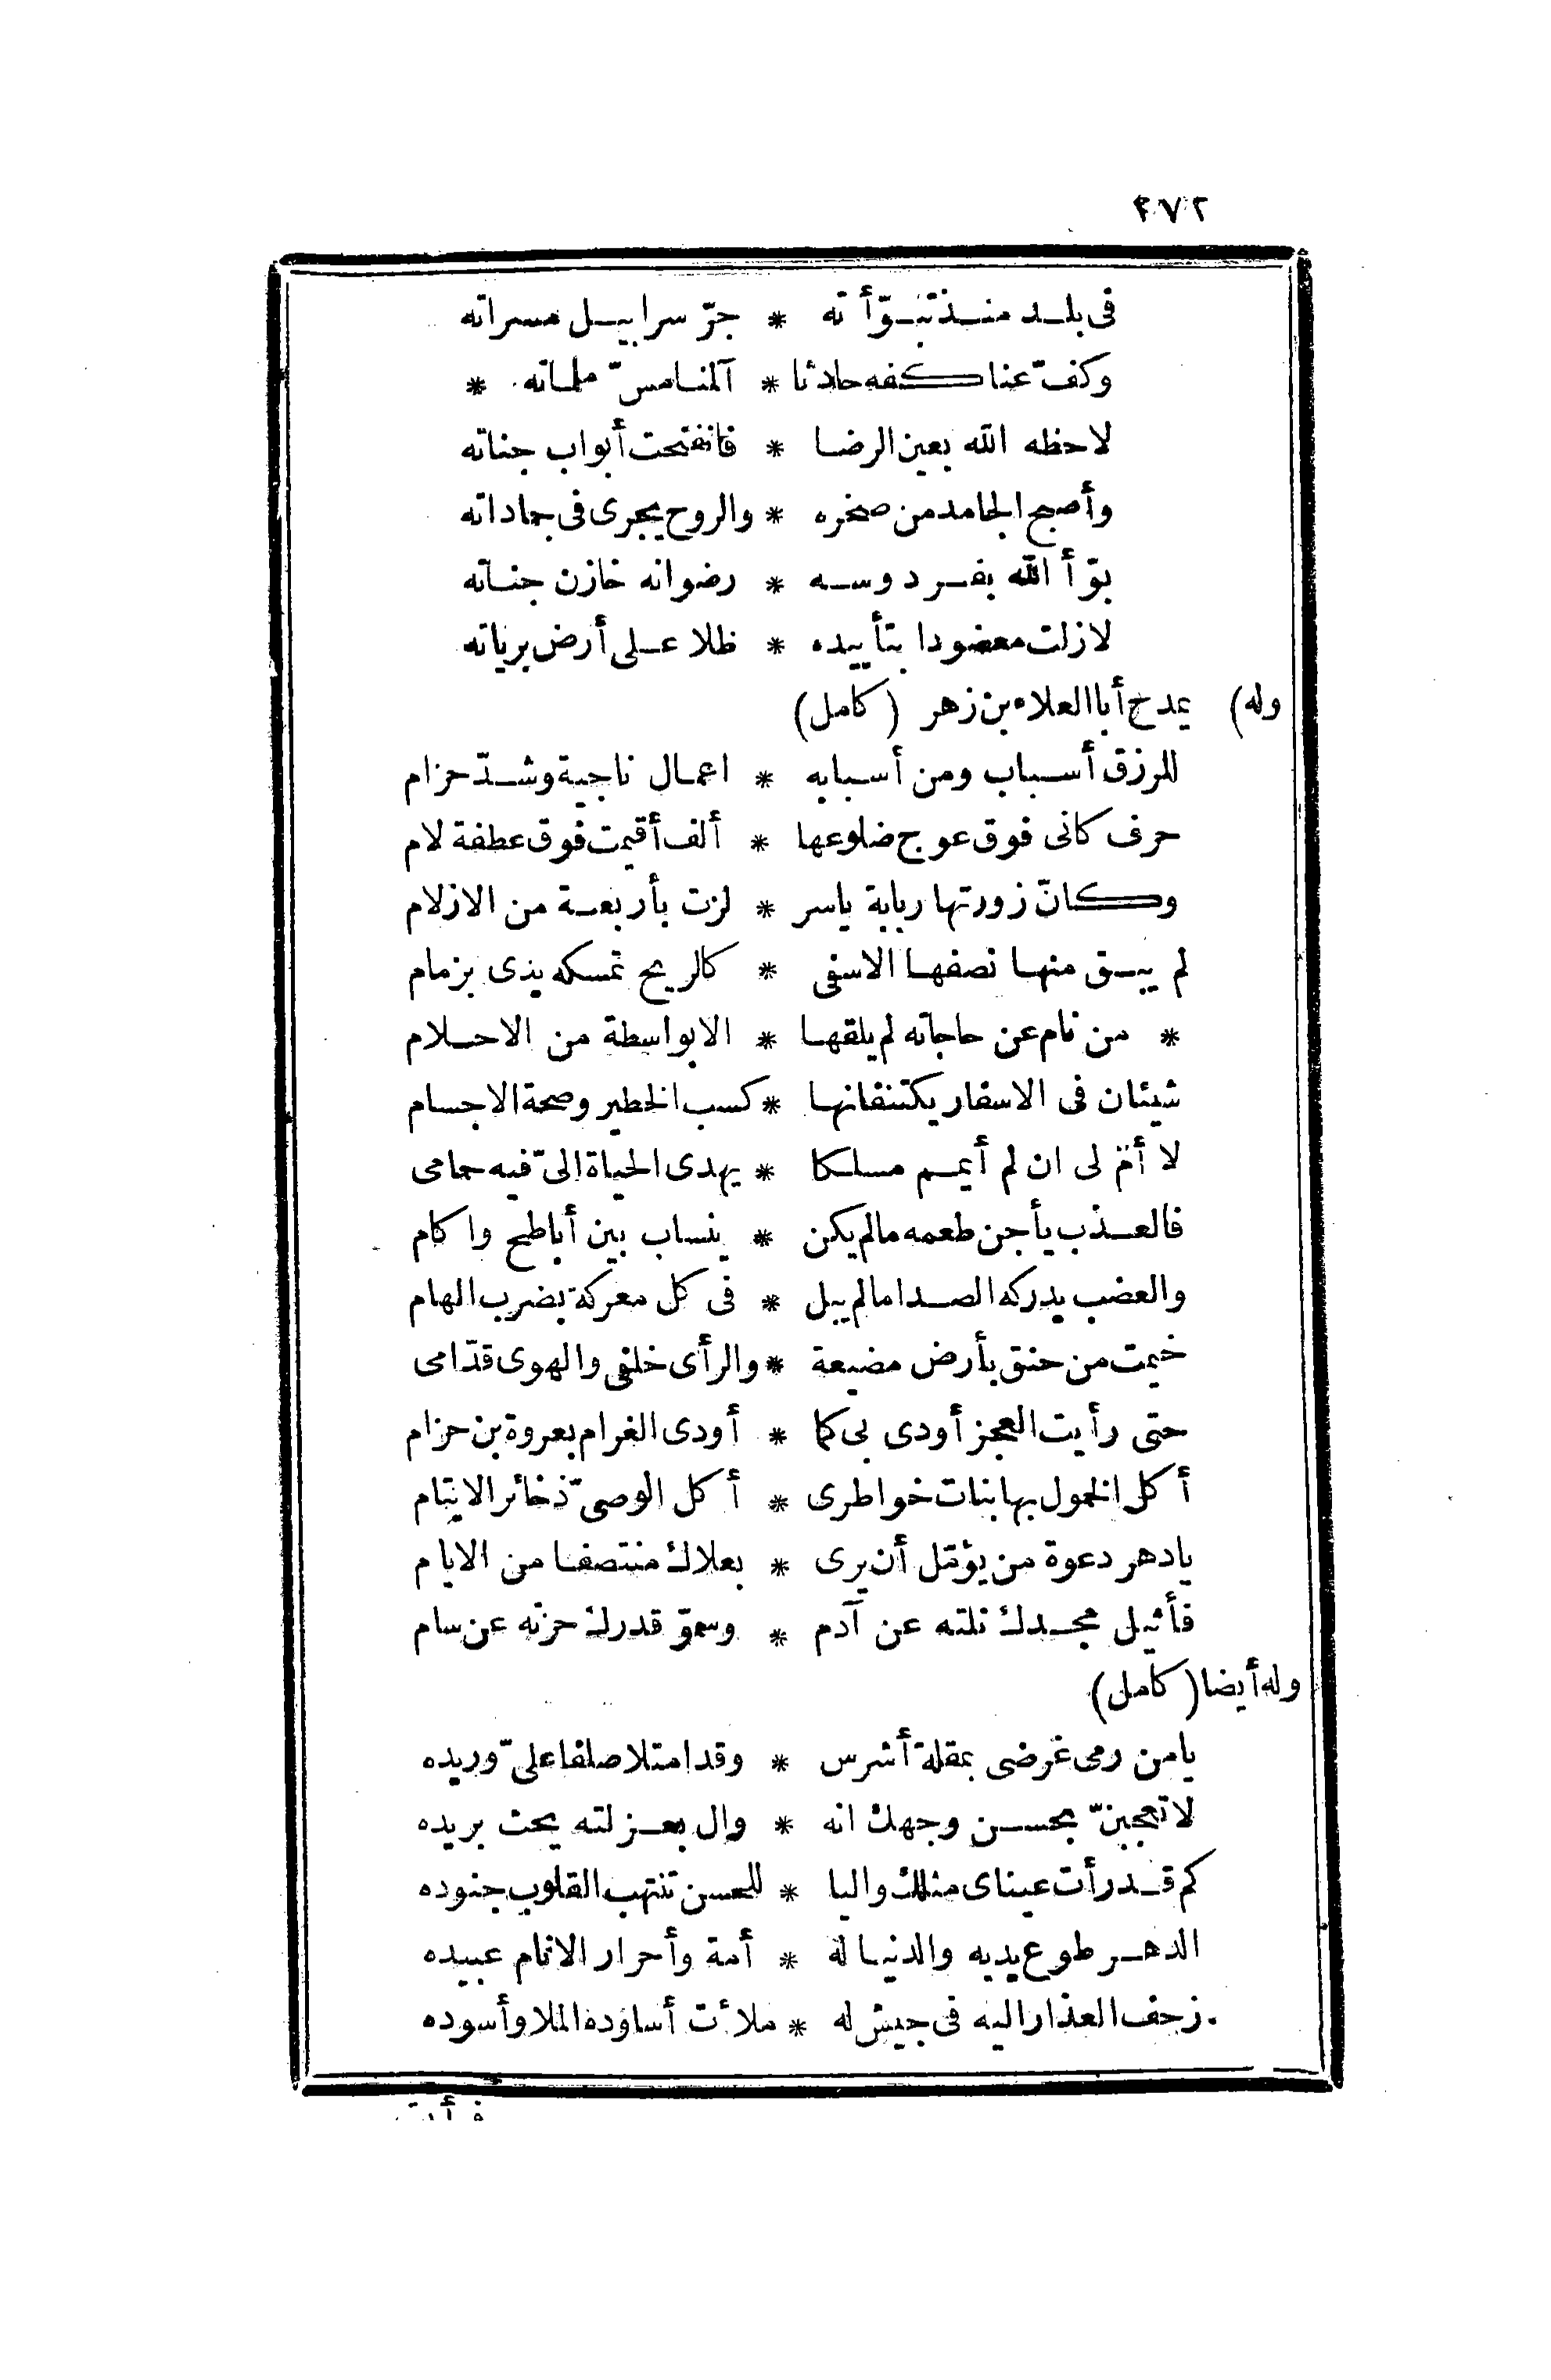 ٢٧٢
فى بلد منذ تبوّأته * جرّ سرابيل مسراته
وكفّ عنا كفه حادثا * آلمنا مسّ ملماته *
لاحظه الله بعين الرضا * فانفتحت أبواب جناته
وأصبح الجامد من صخره * والروح يجرى فى جماداته
بوّأ الله بفردوسه * رضوانه خازن جناته
لازلت معضودا بتأييده * ظلا على أرض برياته
وله) يمدح أبا العلاء بن زهر (كامل)
للرزق أسباب ومن أسبابه * اعمال ناجية وشدّ حزام
حرف كانى فوق عوج ضلوعها * ألف أقيمت فوق عطفة لام
وكانّ زورتها ربابة ياسر * لزت بأربعة من الازلام
لم يبق منها نصفها الاسفى * كالريح تمسكه يذى بزمام
* من نام عن حاجاته لم يلقها * الابواسطة من الاحلام
شيئان فى الاسفار يكتنفانها * كسب الخطير وصحة الاجسام
لا أمّ لى ان لم أيمم مسلكا * يهدى الحياة الىّ فيه حمامى
فالعذب يأجن طعمه مالم يكن * ينساب بين أباطح واكام
والعضب يدركه الصدا مالم يبل * فى كل معركة بضرب الهام
خيمت من حنق بأرض مضيعة * والرأى خلفى والهوى قدّامى
حتى رأيت العجز أودى بى كما * أودى الغرام بعروة بن حزام
أكل الخمول بها بنات خواطرى * أكل الوصىّ ذخائر الايتام
يادهر دعوة من يؤمّل أن يرى * بعلاك منتصفا من الايام
فأثيل مجدك نلته عن آدم * وسموّ قدرك حزته عن سام
وله أيضا (كامل)
يامن رمى غرضى بمقلة أشرس * وقد امتلا صلفا علىّ وريده
لاتعجبنّ بحسن وجهك انه * وال بعزلته يحث بريده
كم قدرأت عيناى مثلك واليا * للحسن تنتهب القلوب جنوده
الدهر طوع يديه والدنيا له * أمة وأحرار الانام عبيده
زحف العذار اليه فى جيش له * ملأت أساوده الملا وأسوده